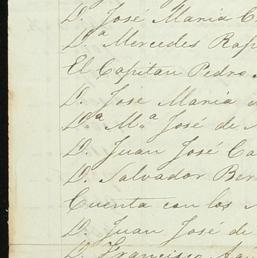 D. José Maria C
D.ª Mercedes Rap
El Capitan Pedro
D. Jose Maria
D.ª M.ª José de
D. Juan José Ca
D. Salvador Ber
Cuenta con los
D. Juan José de
D. Francisco